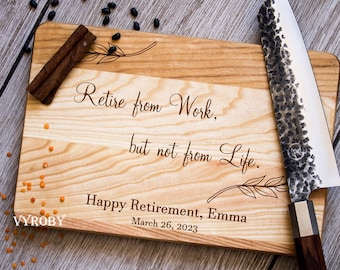 Retire from Work,
but not from Life.
Happy Retirement, Emma
March 26, 2023
VYROBY